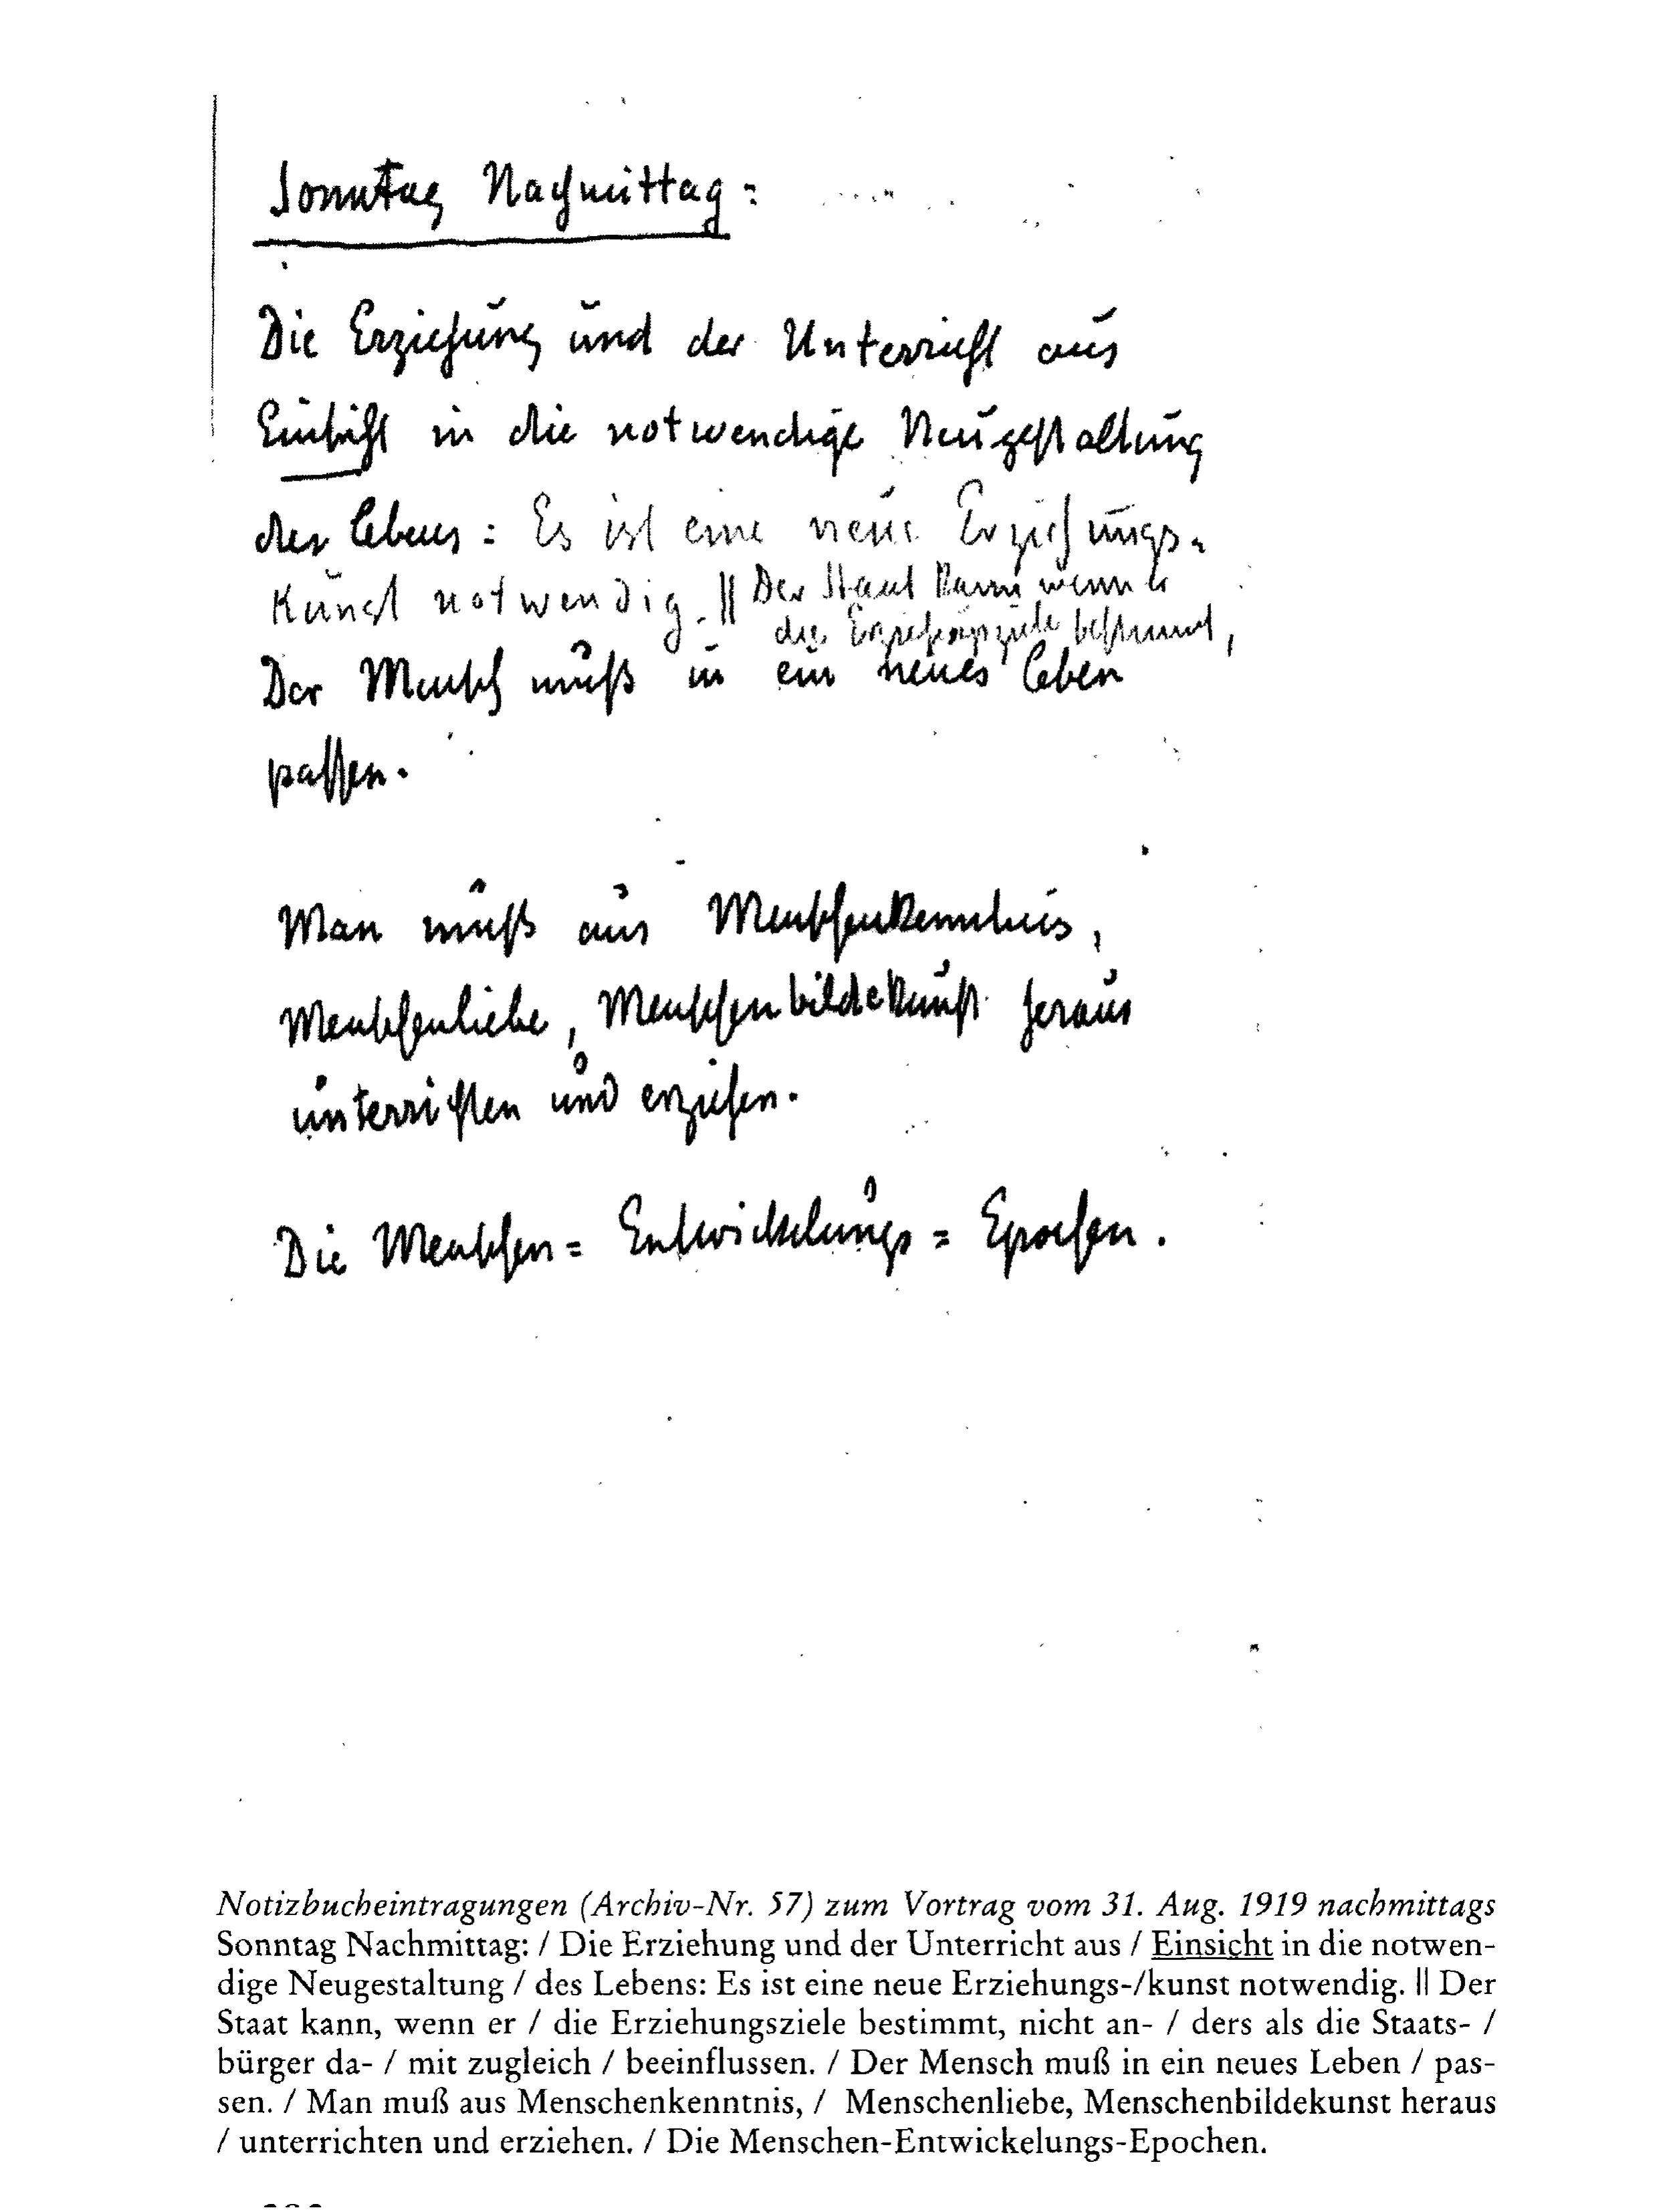 Sonntag Nachmittag:
Die Erziehung und der Unterricht aus
Einsicht in die notwendige Neugestaltung
des Lebens: Es ist eine neue Erziehungs-
kunst notwendig. || Der Staat kann wenn er
die Erziehungsziele bestimmt,
Der Mensch muß in ein neues Leben
passen.
Man muß aus Menschenkenntnis,
Menschenliebe, Menschenbildekunst heraus
unterrichten und erziehen.
Die Menschen= Entwickelungs= Epochen.
Notizbucheintragungen (Archiv-Nr. 57) zum Vortrag vom 31. Aug. 1919 nachmittags
Sonntag Nachmittag: / Die Erziehung und der Unterricht aus / Einsicht in die notwen-
dige Neugestaltung / des Lebens: Es ist eine neue Erziehungs-/kunst notwendig. || Der
Staat kann, wenn er / die Erziehungsziele bestimmt, nicht an- / ders als die Staats- /
bürger da- / mit zugleich / beeinflussen. / Der Mensch muß in ein neues Leben / pas-
sen. / Man muß aus Menschenkenntnis, / Menschenliebe, Menschenbildekunst heraus
/ unterrichten und erziehen. / Die Menschen-Entwickelungs-Epochen.